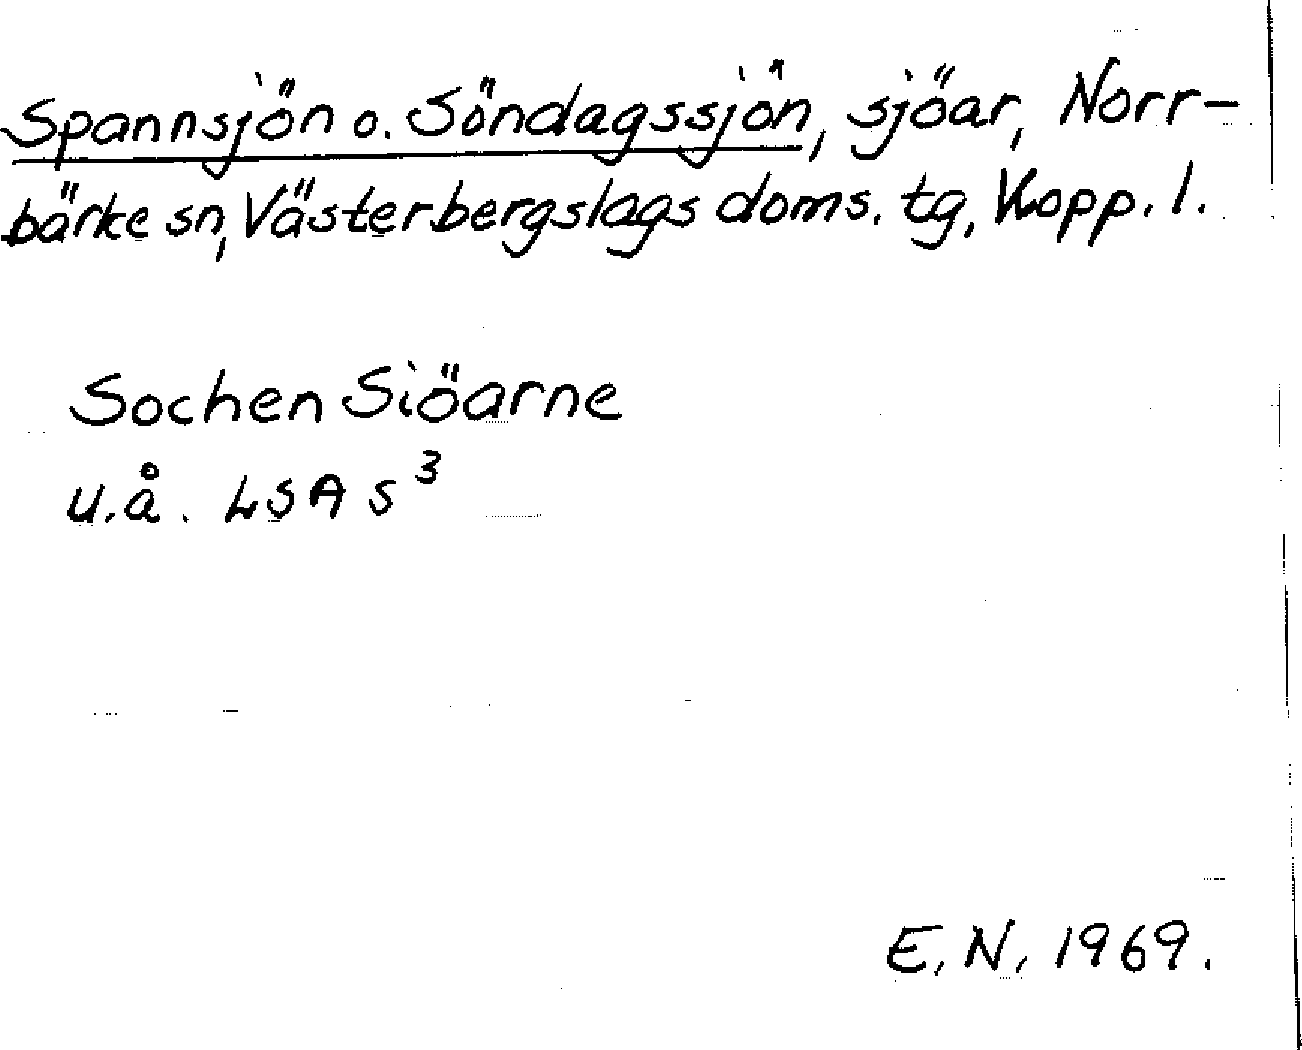 Spannsjön o. Söndagssjön, sjöar, Norr-
bärke sn, Västerbergslags doms. tg, Kopp. l.
Sochen Siöarne
u.å. LSA S³
E. N. 1969.